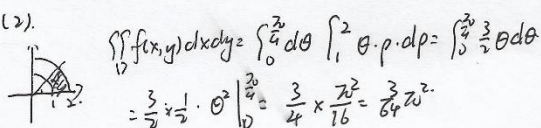 (2). ∬_D f(x,y)dxdy = ∫_0^{π/4} dθ ∫_1^2 θ·ρ·dρ = ∫_0^{π/4} 3/2 θdθ
1 2
= 3/2 × 1/2 · θ² |_0^{π/4} = 3/4 × π²/16 = 3/64 π².